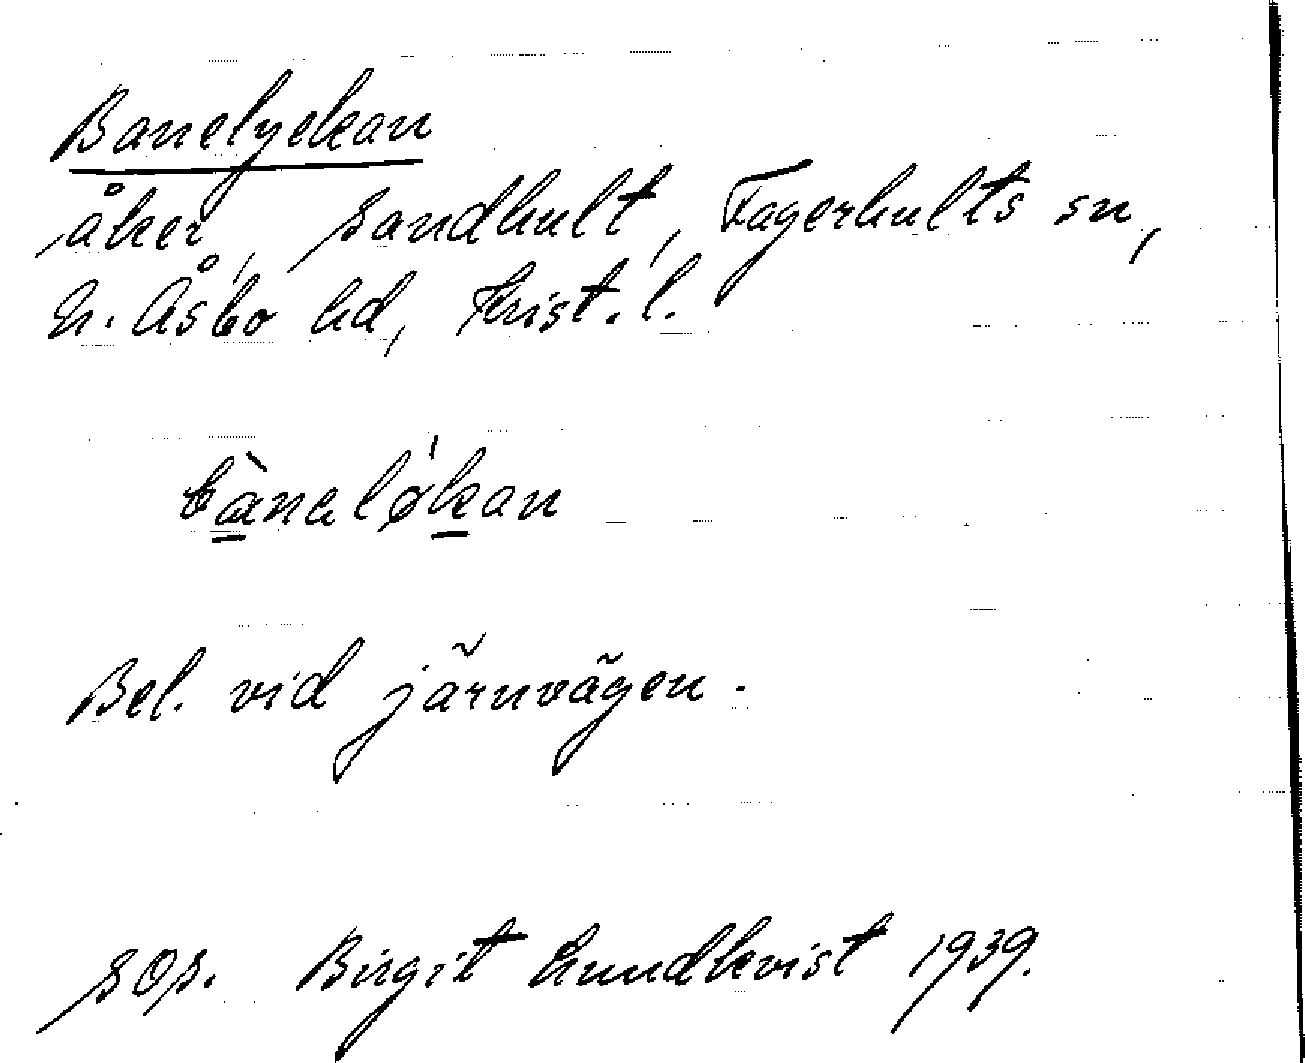 Banelyckan
åker, Sandhult, Fagerhults sn,
N. Åsbo hd, Krist. l.
bànaløkan
Bel. vid järnvägen.
SOS. Birgit Lundkvist 1939.